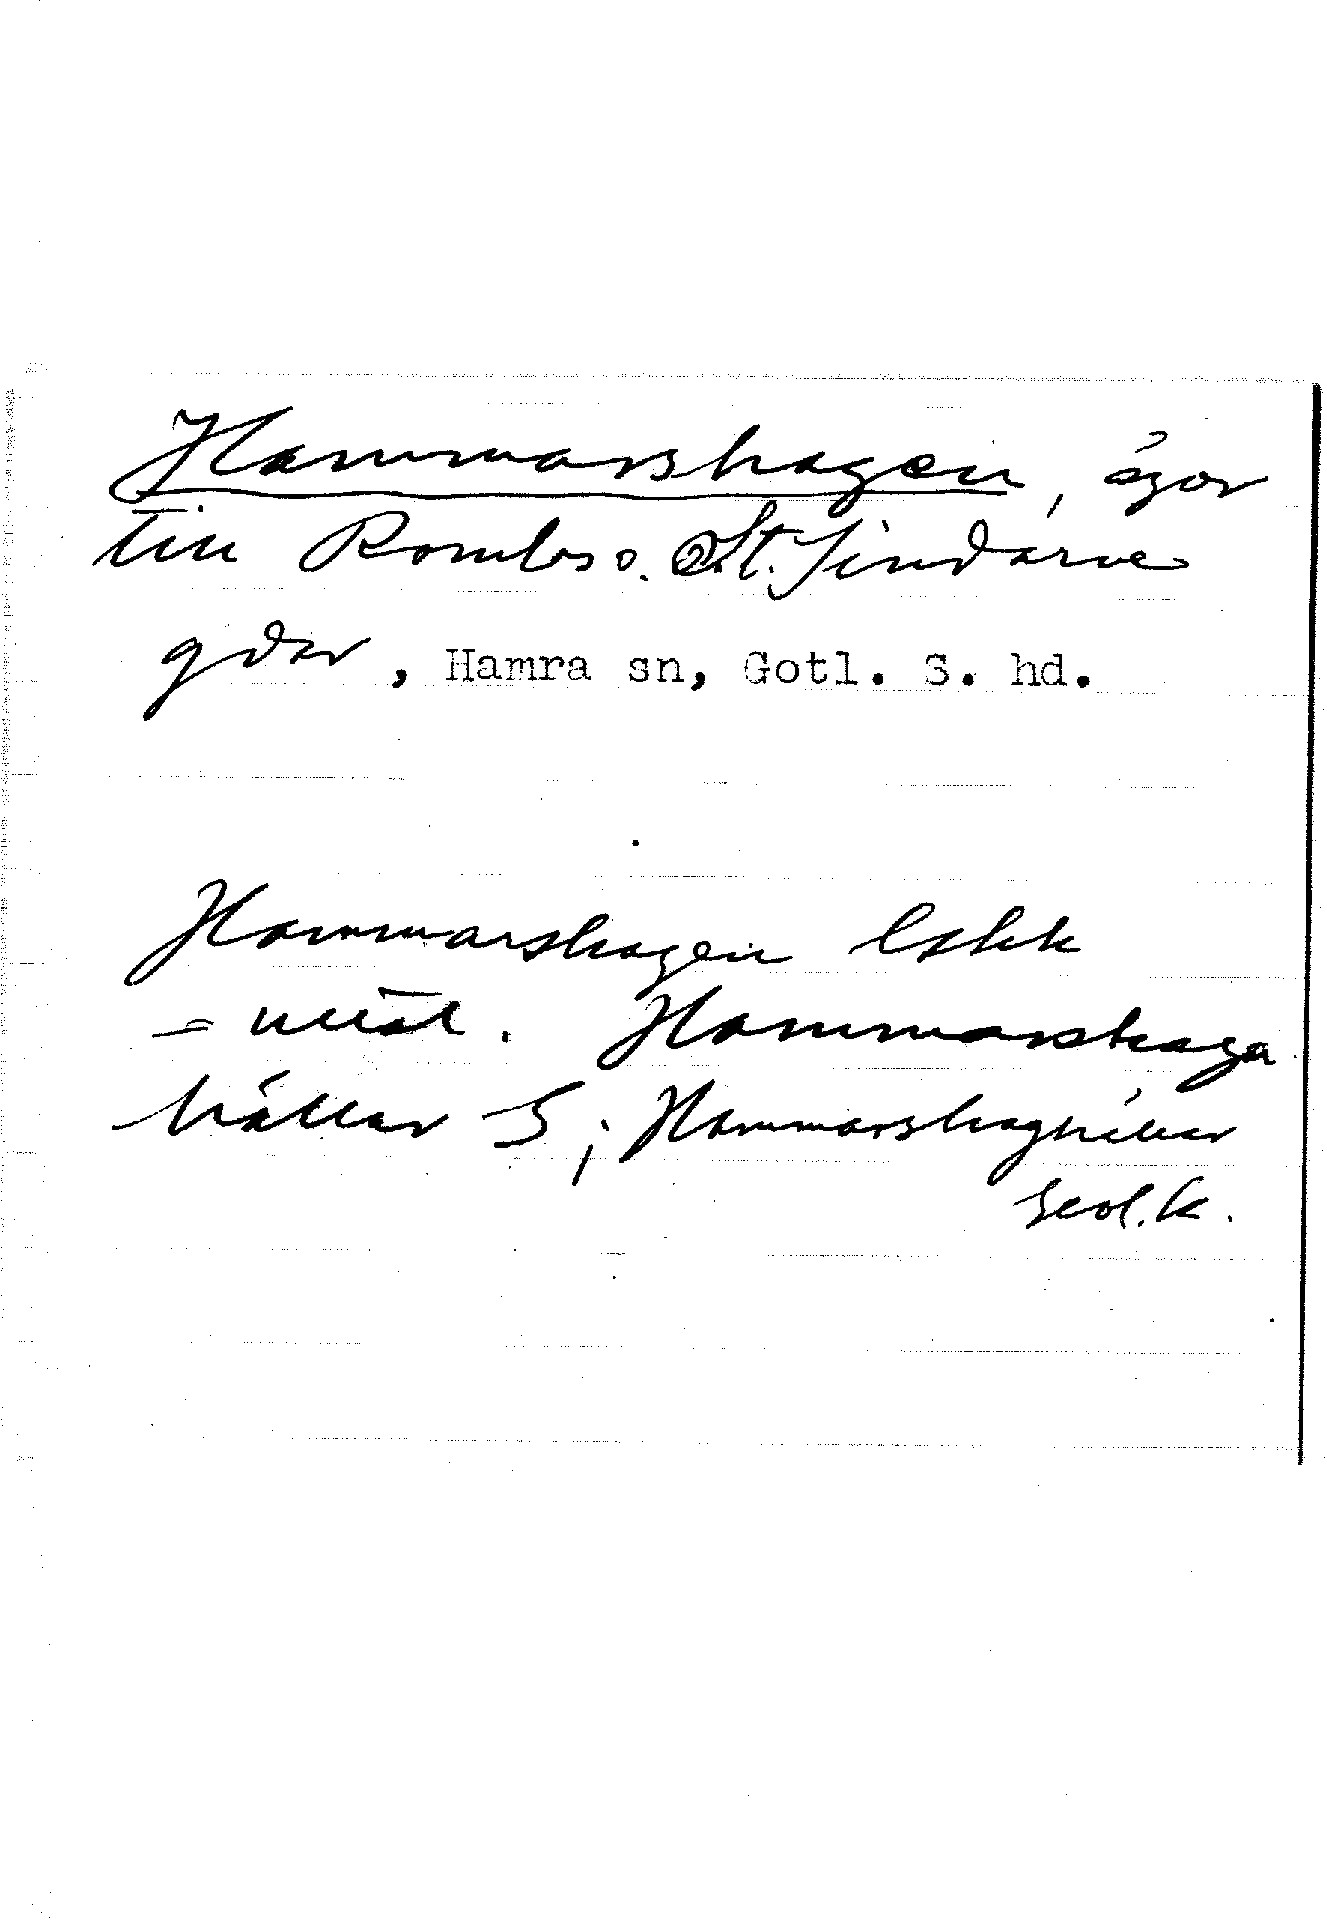 Hammarshagen, ägor
till Rombs o. St. Sindarve
gdar, Hamra sn, Gotl. S. hd.
Hammarshagen
Hammarshaga
hällar S; Hammarshaghällar
geol. k.